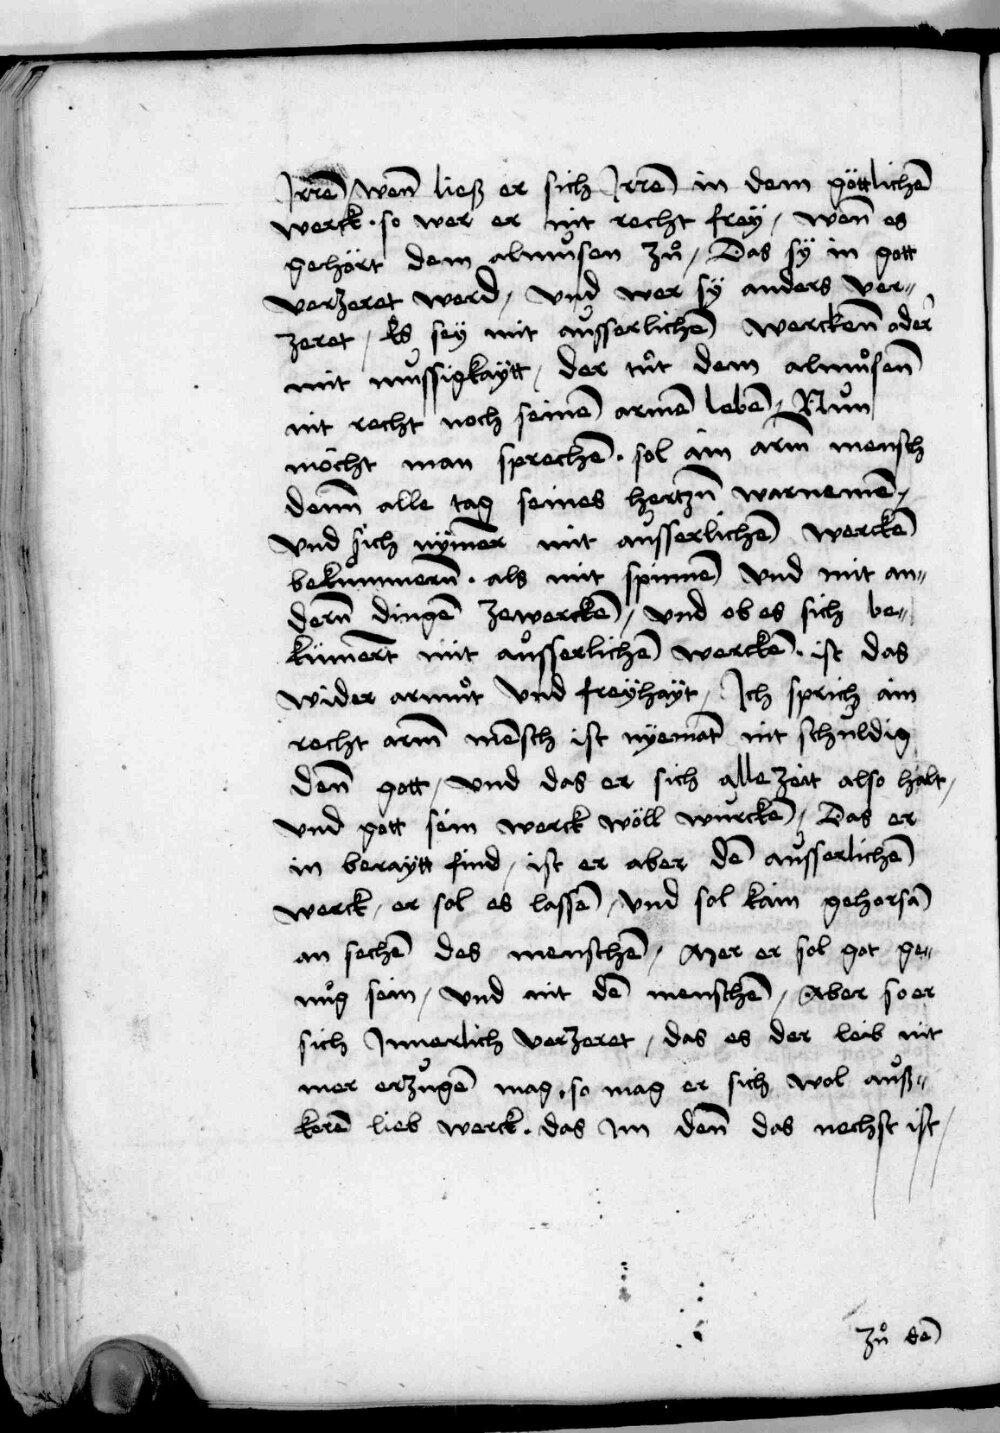 Jrrē / Wen̄ ließ er sich Jrrē in dem göttlichē
werck · so wer er nit recht freÿ / wen̄ es
gehört dem almůsen zů / Das sÿ in gott
verzeret werd / Vnd wer sÿ anders ver-
zeret / Es seÿ mit ausserlichē wercken̄ oder
mit mussigkaÿtt / der tůt dem almůsen̄
nit recht noch seinē armē lebē / Nun
möcht man sprechē · sol ain arm̄ mensch
denn̄ alle tag seines hertzn̄ warnemē /
Vnd sich nÿm̄er mit ausserlichē werckē
bekummern̄ · als mit spinnē Vnd mit an-
dern̄ dingē zewerckē / Vnd ob es sich be-
küm̄ert mit aůsserlichē werckē · ist das
wider armůt Vnd freÿhaÿt / Jch sprich ain
recht arm̄ mēsch ist nÿemāt nit schuldig
den̄ gott / Vnd das er sich alle zeit also halt /
Vnd gott sein werck wöll wurckē / Das er
in beraÿtt find / ist er aber dē ausserlichē
werck / er sol es lassē / Vnd sol kain gehorsā
an sechē des menschē / Mer er sol got ge-
nůg sein / Vnd nit dē menschē / Aber so er
sich Jnnerlich verzeret / das es der leib nit
mer erzugē mag · so mag er sich wol auß-
kerē lieb werck · das Jm den̄ das nechst ist /
zů dē